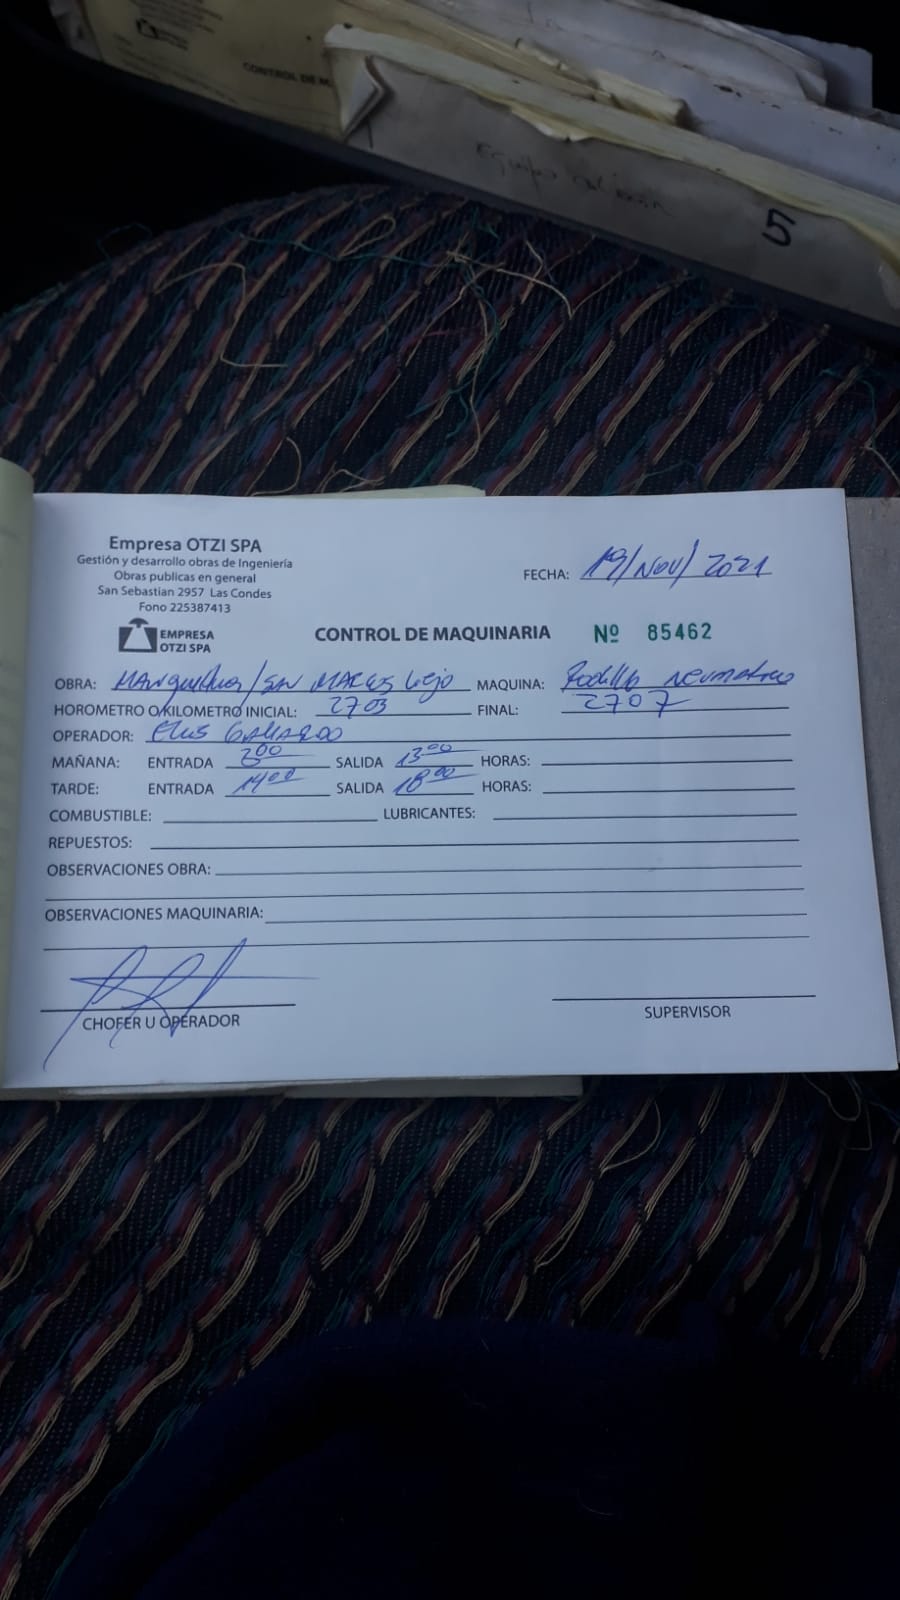 CONTROL DE M
5
Empresa OTZI SPA
Gestión y desarrollo obras de Ingeniería
Obras publicas en general
San Sebastian 2957 Las Condes
Fono 225387413
EMPRESA
OTZI SPA
FECHA: 19/Nov/2021
CONTROL DE MAQUINARIA Nº 85462
OBRA: / SAN MARCOS MAQUINA: Rodillo Neumatico
HOROMETRO O/KILOMETRO INICIAL: 2703 FINAL: 2707
OPERADOR: GALLARDO
MAÑANA: ENTRADA 800 SALIDA 1300 HORAS:
TARDE: ENTRADA 1400 SALIDA 1800 HORAS:
COMBUSTIBLE: LUBRICANTES:
REPUESTOS:
OBSERVACIONES OBRA:
OBSERVACIONES MAQUINARIA:
CHOFER U OPERADOR
SUPERVISOR